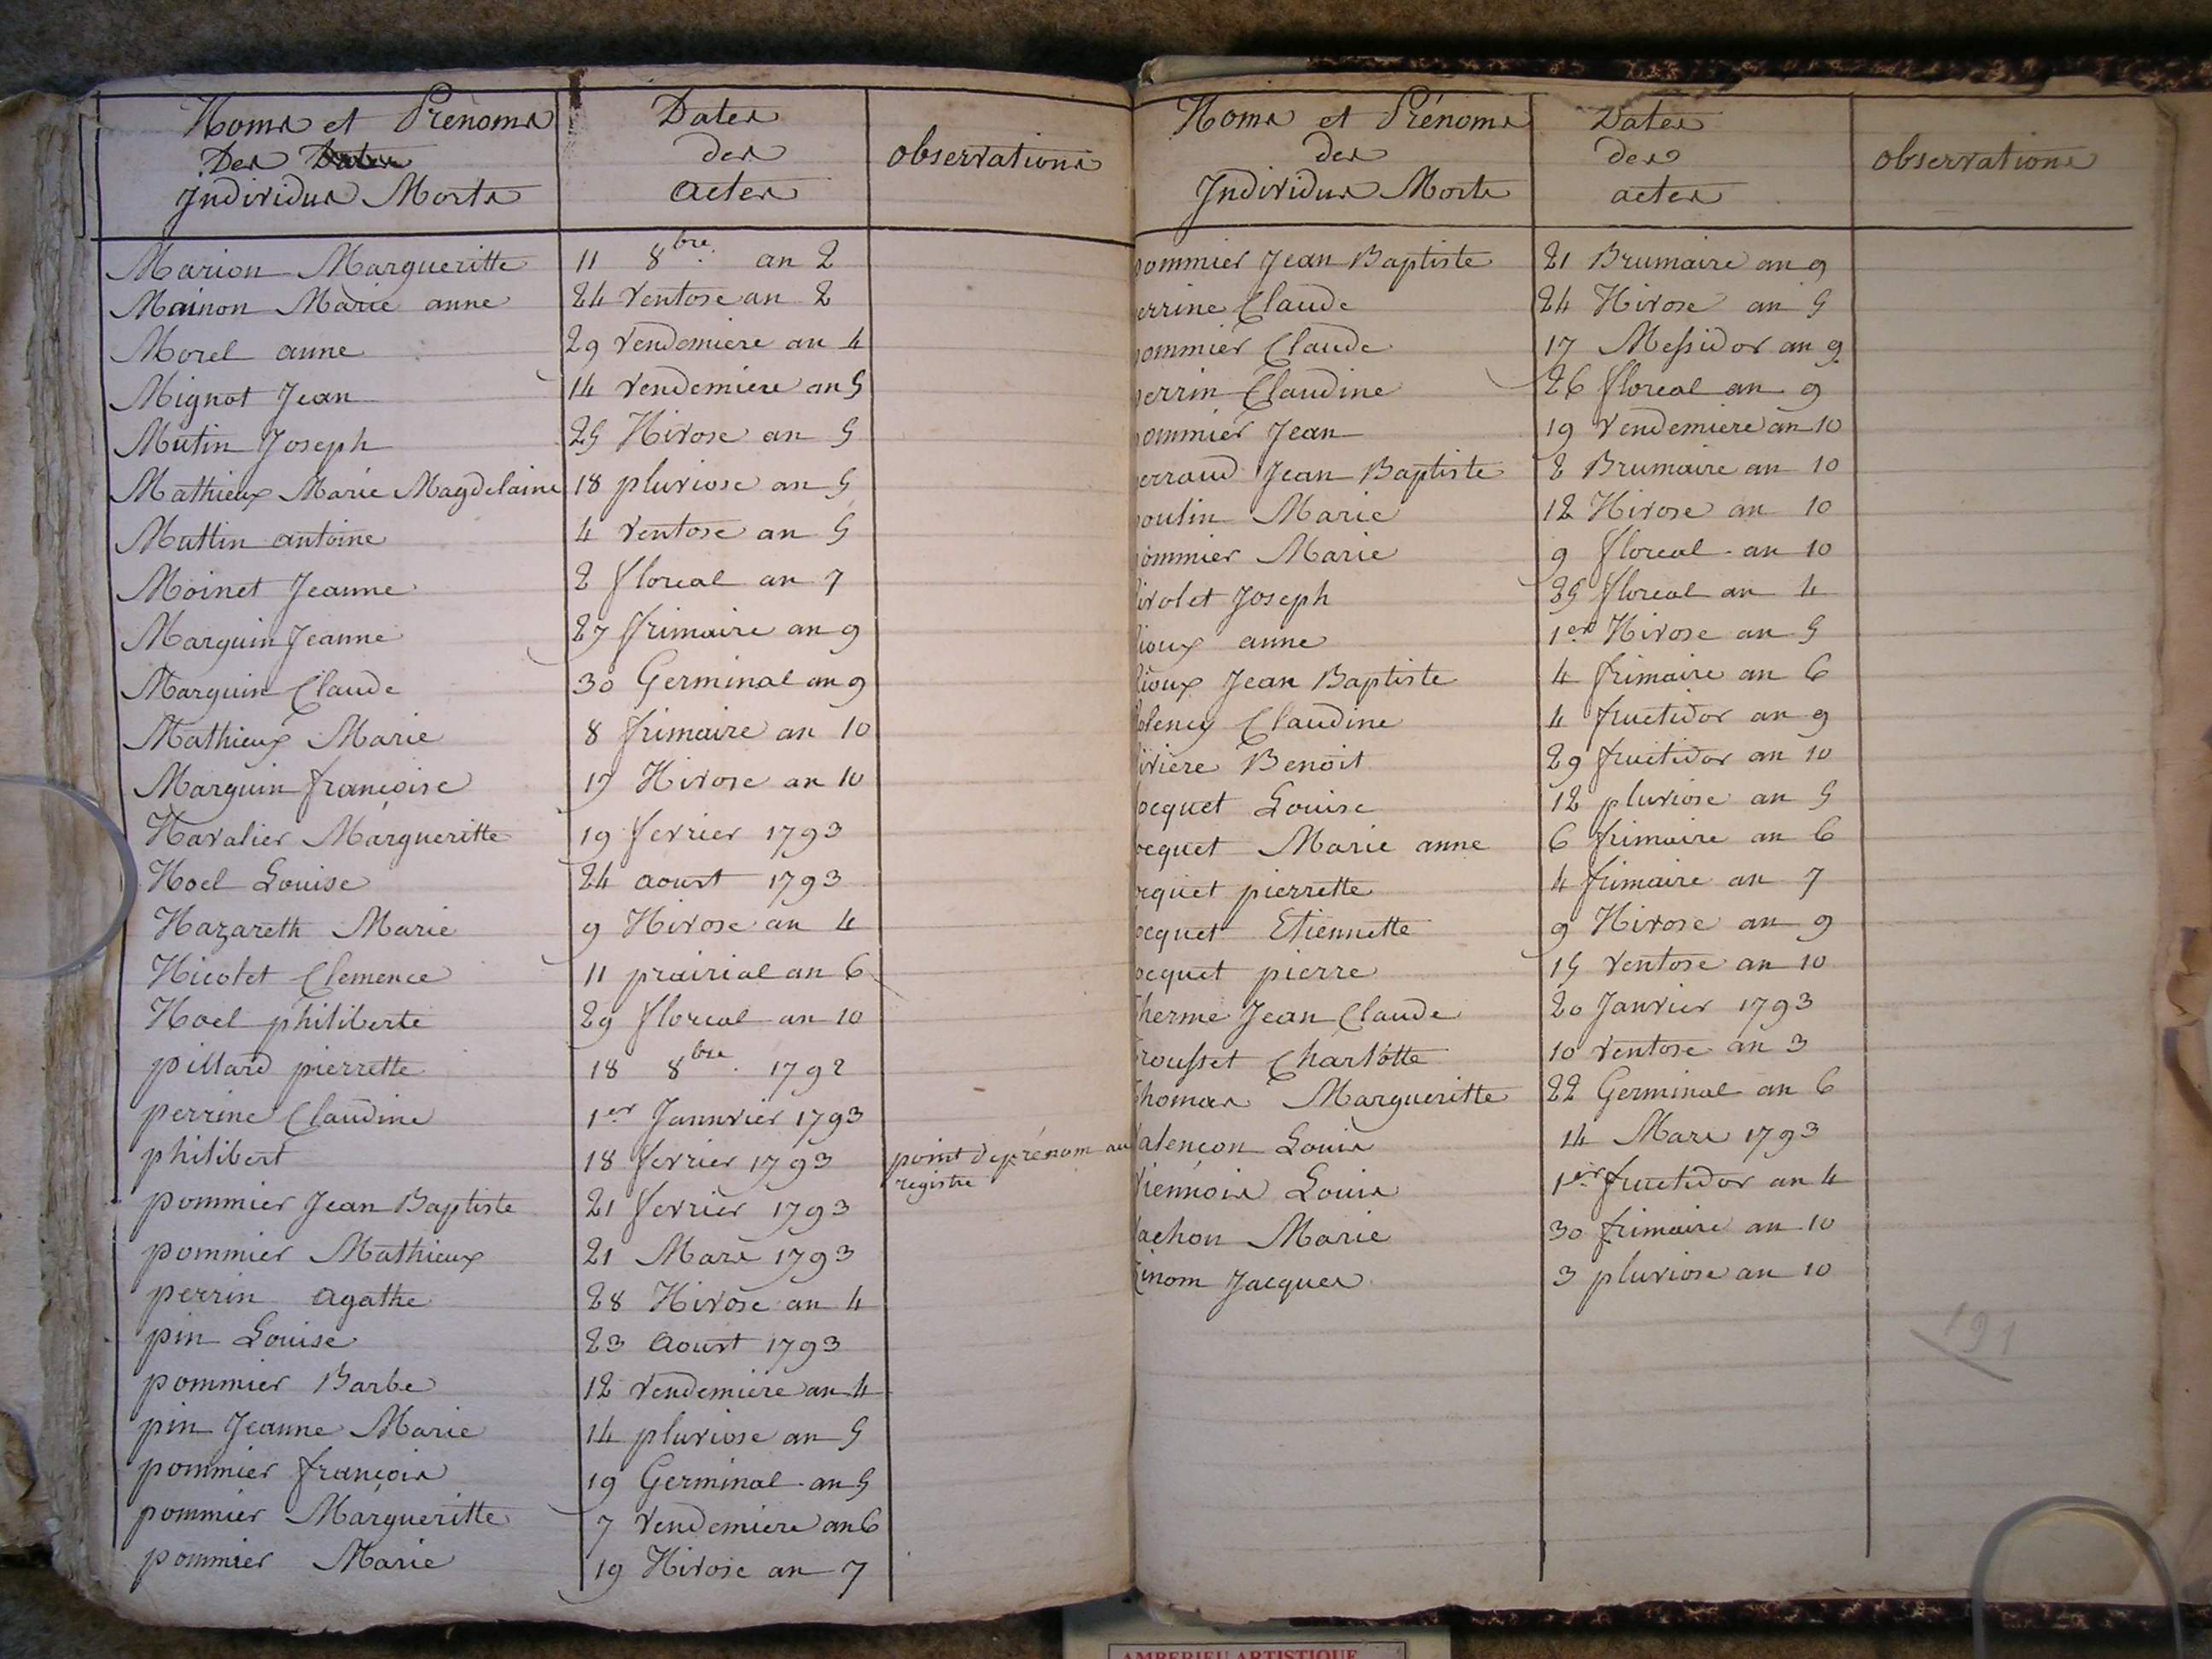 Noms et Prénoms
Des Dates
Individus Morts
Dates
des
actes
observations
Marion Margueritte 11 8bre. an 2
Mainon Marie anne 24 Ventose an 2
Morel anne 29 Vendemiere an 4
Mignot Jean 14 Vendemiere an 5
Mutin Joseph 25 Nivose an 5
Mathieux Marie Magdelaine 18 pluviose an 5
Muttin antoine 4 Ventose an 5
Moinet Jeanne 2 floreal an 7
Marguin Jeanne 27 frimaire an 9
Marguin Claude 30 Germinal an 9
Mathieux Marie 8 frimaire an 10
Marguin françoise 17 Nivose an 10
Navalier Margueritte 19 fevrier 1793
Noel Louise 24 aoust 1793
Nazareth Marie 9 Nivose an 4
Nicolet Clemence 11 prairial an 6
Noel philiberte 29 floreal an 10
pillard pierrette 18 8bre. 1792
perrine Claudine 1er Jannvier 1793
philibert 18 fevrier 1793 point de prénom au
registre
pommier Jean Baptiste 21 fevrier 1793
pommier Mathieux 21 Mars 1793
perrin agathe 28 Nivose an 4
pin Louise 23 Aoust 1793
pommier Barbe 12 Vendemiere an 4
pin Jeanne Marie 14 pluviose an 5
pommier françois 19 Germinal an 5
pommier Margueritte 7 Vendemiere an 6
pommier Marie 19 Nivose an 7
Noms et Prénoms
des
Individus Morts
Dates
des
actes
observations
pommier Jean Baptiste 21 Brumaire an 9
errine Claude 24 Nivose an 5
pommier Claude 17 Messidor an 9
perrin Claudine 26 floreal an 9
pommier Jean 19 Vendemiere an 10
perraud Jean Baptiste 2 Brumaire an 10
poulin Marie 12 Nivose an 10
pommier Marie 9 floreal an 10
ivolet Joseph 25 floreal an 4
ioux anne 1er Nivose an 5
ioux Jean Baptiste 4 frimaire an 6
olency Claudine 4 fructidor an 9
iviere Benoit 29 fructidor an 10
ocquet Louise 12 pluviose an 5
ocquet Marie anne 6 frimaire an 6
ocquet pierrette 4 frimaire an 7
ocquet Etiennette 9 Nivose an 9
ocquet pierre 15 Ventose an 10
Therme Jean Claude 20 Janvier 1793
Trousset Charlotte 10 Ventose an 3
Thomas Margueritte 22 Germinal an 6
alençon Louis 14 Mars 1793
Viennois Louis 1er fructidor an 4
achon Marie 30 frimaire an 10
inom Jacques 3 pluviose an 10
191
AMBERIEU ARTISTIQUE